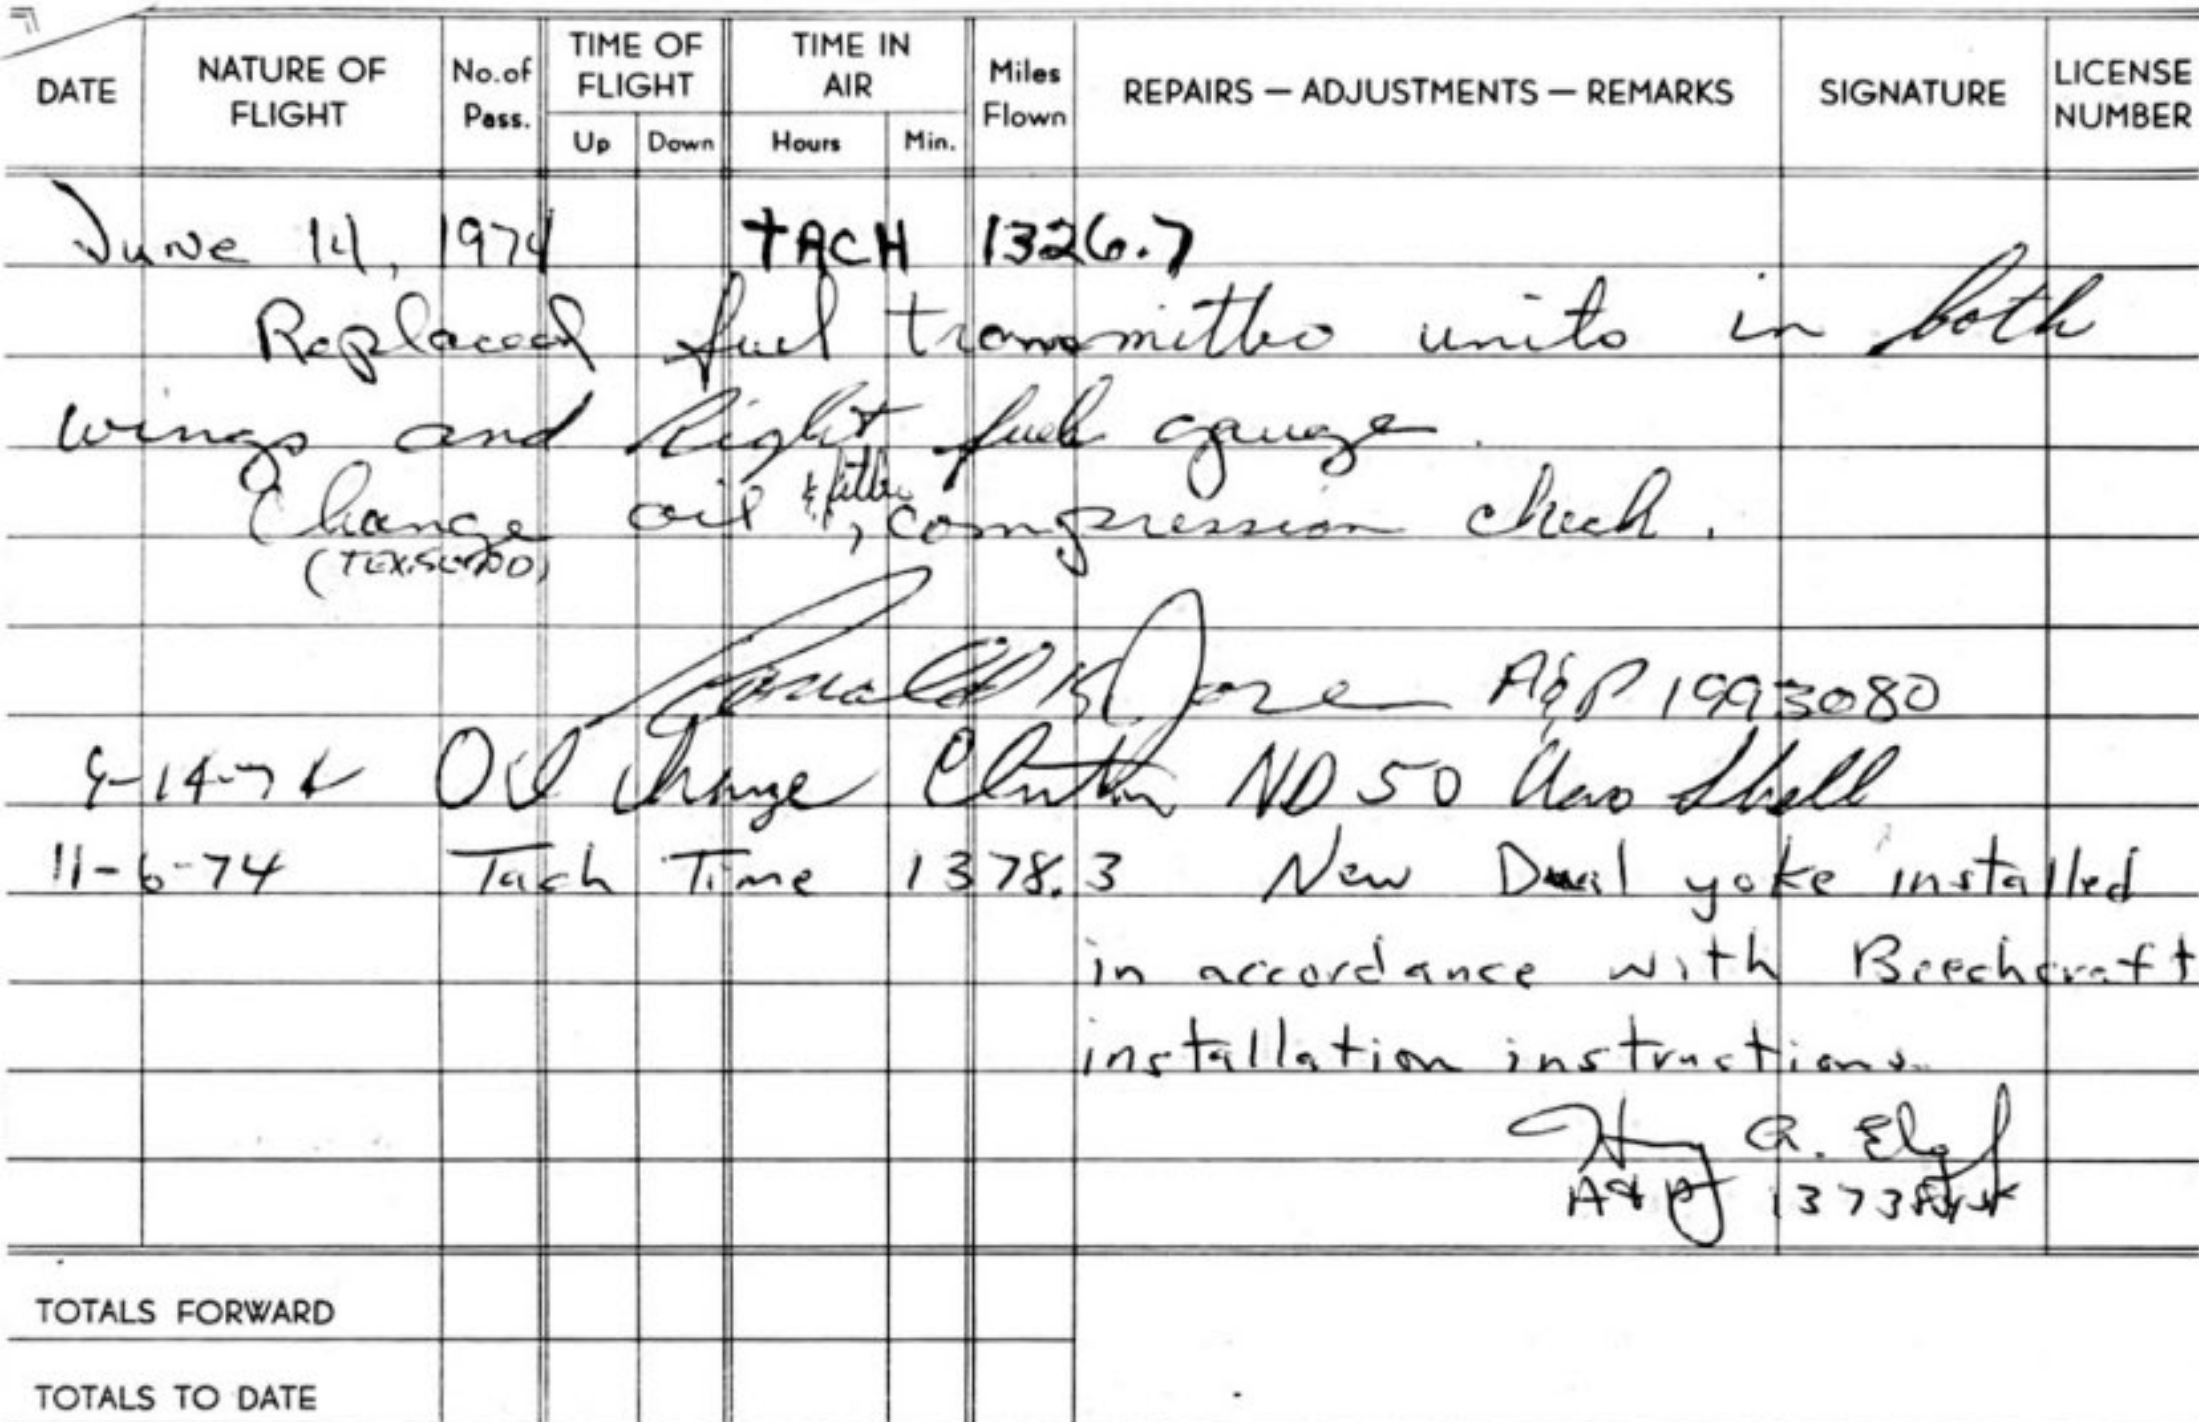 DATE NATURE OF FLIGHT No. of Pass. TIME OF FLIGHT TIME IN AIR Miles Flown REPAIRS — ADJUSTMENTS — REMARKS SIGNATURE LICENSE NUMBER
Up Down Hours Min.
June 14, 1974 TACH 1326.7
Replaced fuel transmitter units in both
wings and Right fuel gauge.
& filter
Change oil, compression check.
Ronald K Jore A&P 1993080
9-14-74 Oil Change ND 50 Aero Shell
11-6-74 Tach Time 1378.3 New Dual yoke installed
in accordance with Beechcraft
installation instructions.
A&P
TOTALS FORWARD
TOTALS TO DATE